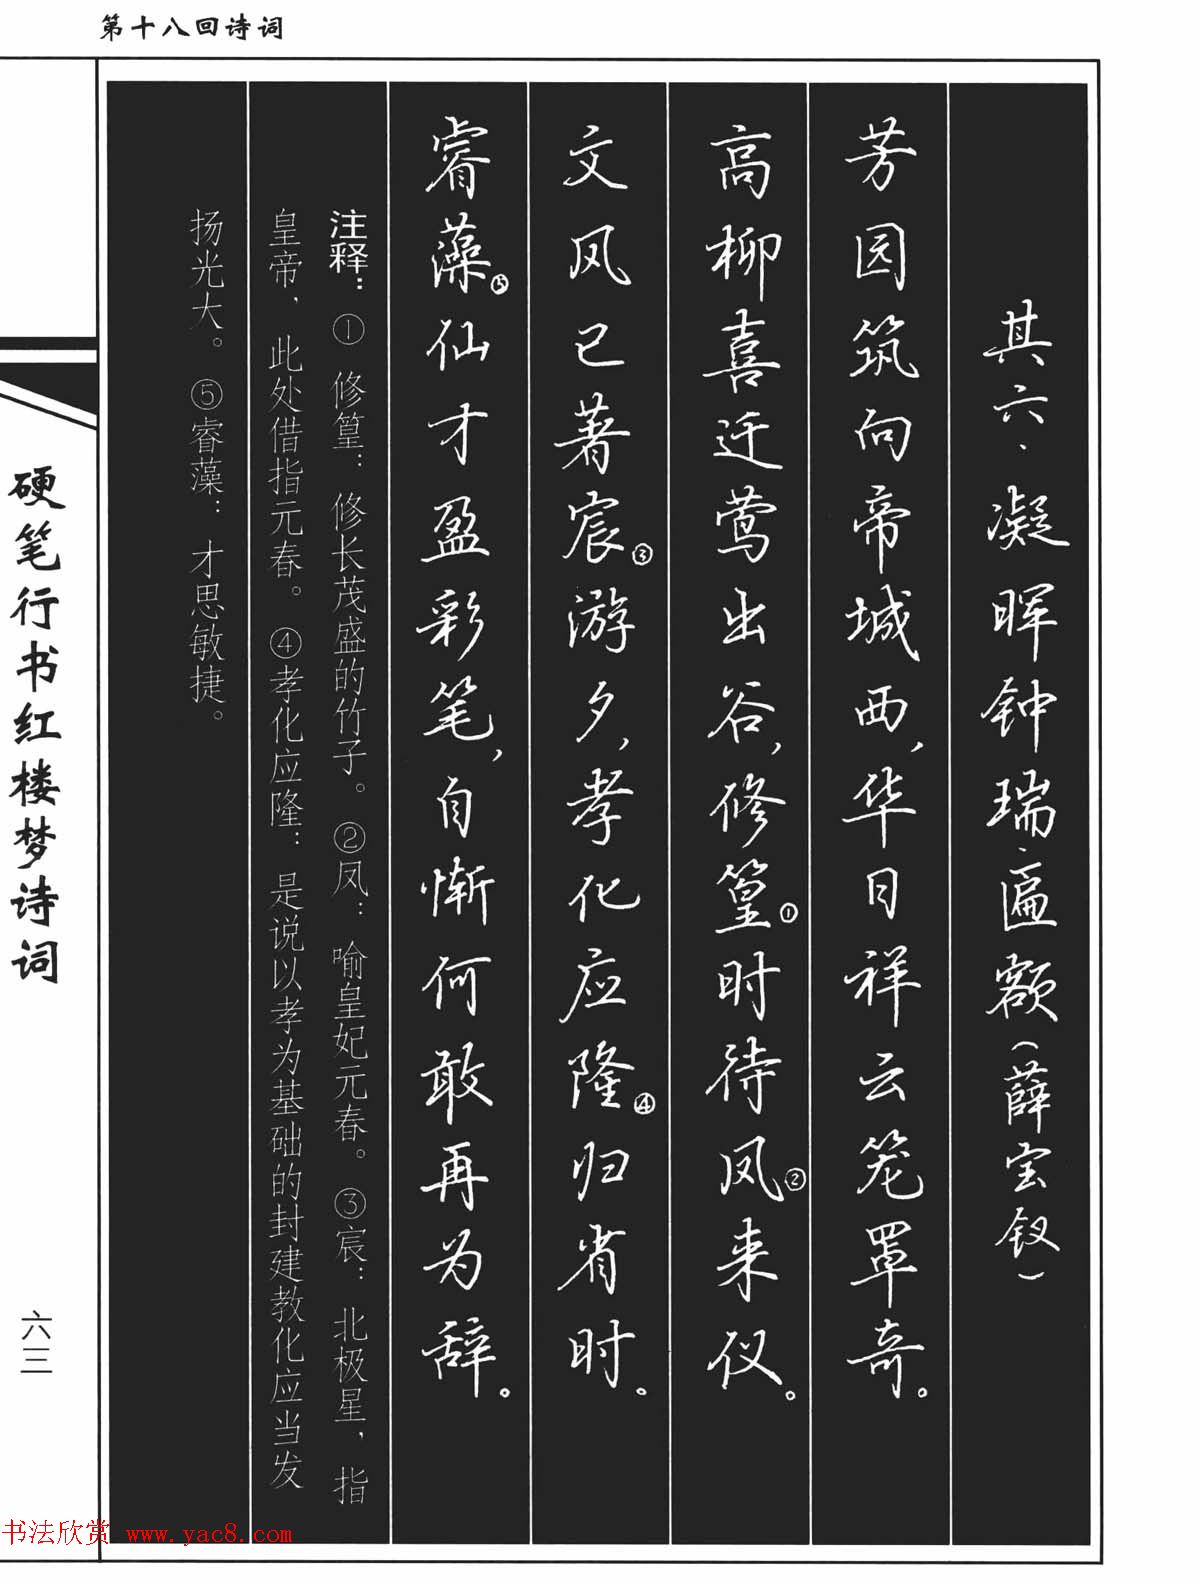 第十八回诗词
其六、凝晖钟瑞、匾额（薛宝钗）
芳园筑向帝城西，华日祥云笼罩奇。
高柳喜迁莺出谷，修篁①时待凤②来仪。
文风已著宸③游夕，孝化应隆④归省时。
睿藻⑤仙才盈彩笔，自惭何敢再为辞。
注释：①修篁：修长茂盛的竹子。②凤：喻皇妃元春。③宸：北极星，指
皇帝，此处借指元春。④孝化应隆：是说以孝为基础的封建教化应当发
扬光大。⑤睿藻：才思敏捷。
硬笔行书红楼梦诗词
六三
书法欣赏 www.yac8.com